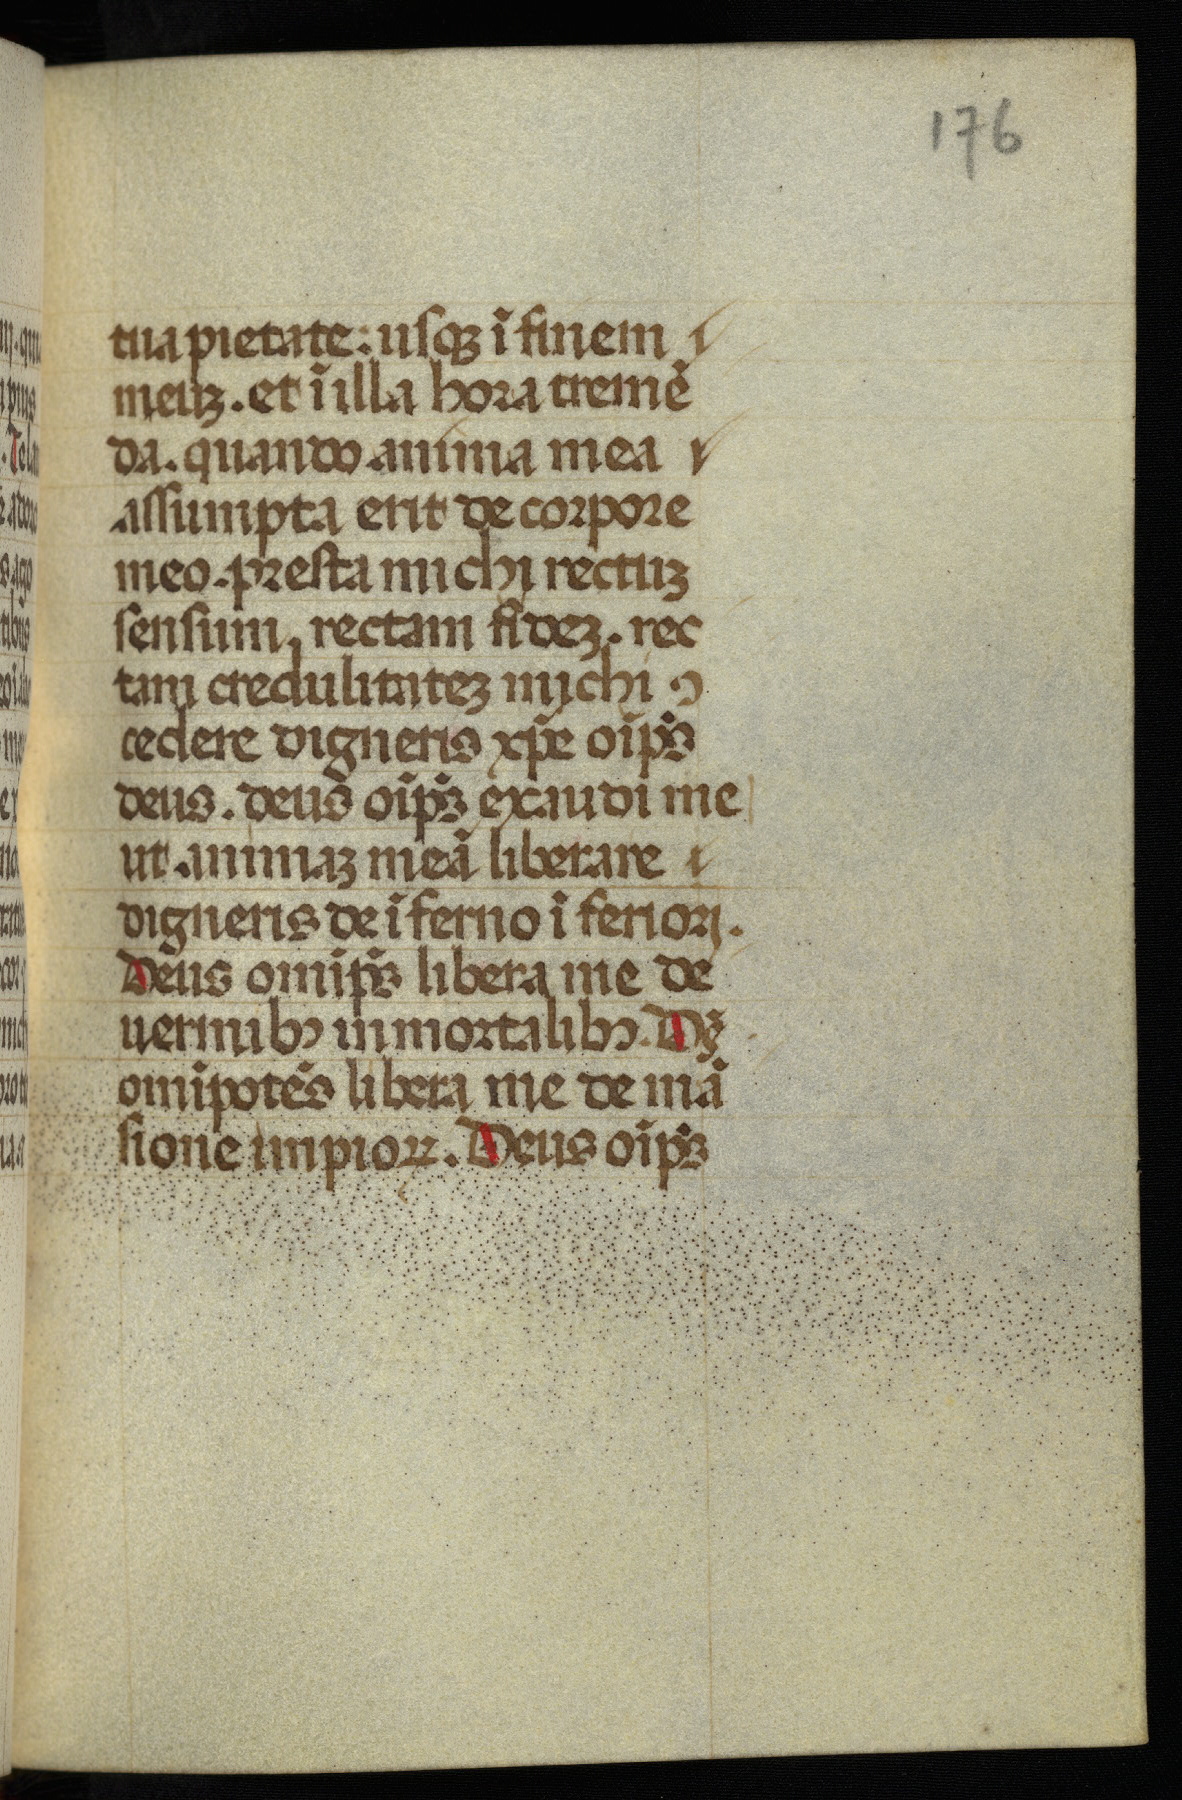 176
tua pietate: usqꝫ ī finem
meuꝫ. et ī illa hora tremē
da. quando anima mea
assumpta erit de corpore
meo. presta michi rectuꝫ
sensum, rectam fideꝫ. rec
tam credulitateꝫ michi ꝯ
cedere digneris xp̄e oīps̄
deus. deus oīps̄ exaudi me
ut animaꝫ meā liberare
digneris de īferno īferiori.
Deus omīps̄ libera me de
uermibꝰ inmortalibꝰ. Dꝫ
omīpotēs libera me de mā
sione impioꝝ. Deus oīps̄